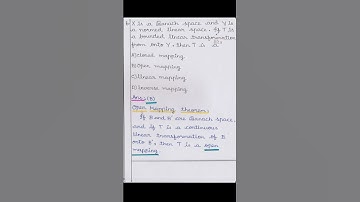 X is a Banach space and Y is
a normed linear space. If T is
a bounded linear transformation
from onto Y, then T is a
A) closed mapping
B) Open mapping
C) linear mapping
D) Inverse mapping
Ans: (B)
Open mapping theorem:
If B and B' are Banach space
and if T is a continuous
linear transformation of B
onto B', then T is a open
mapping